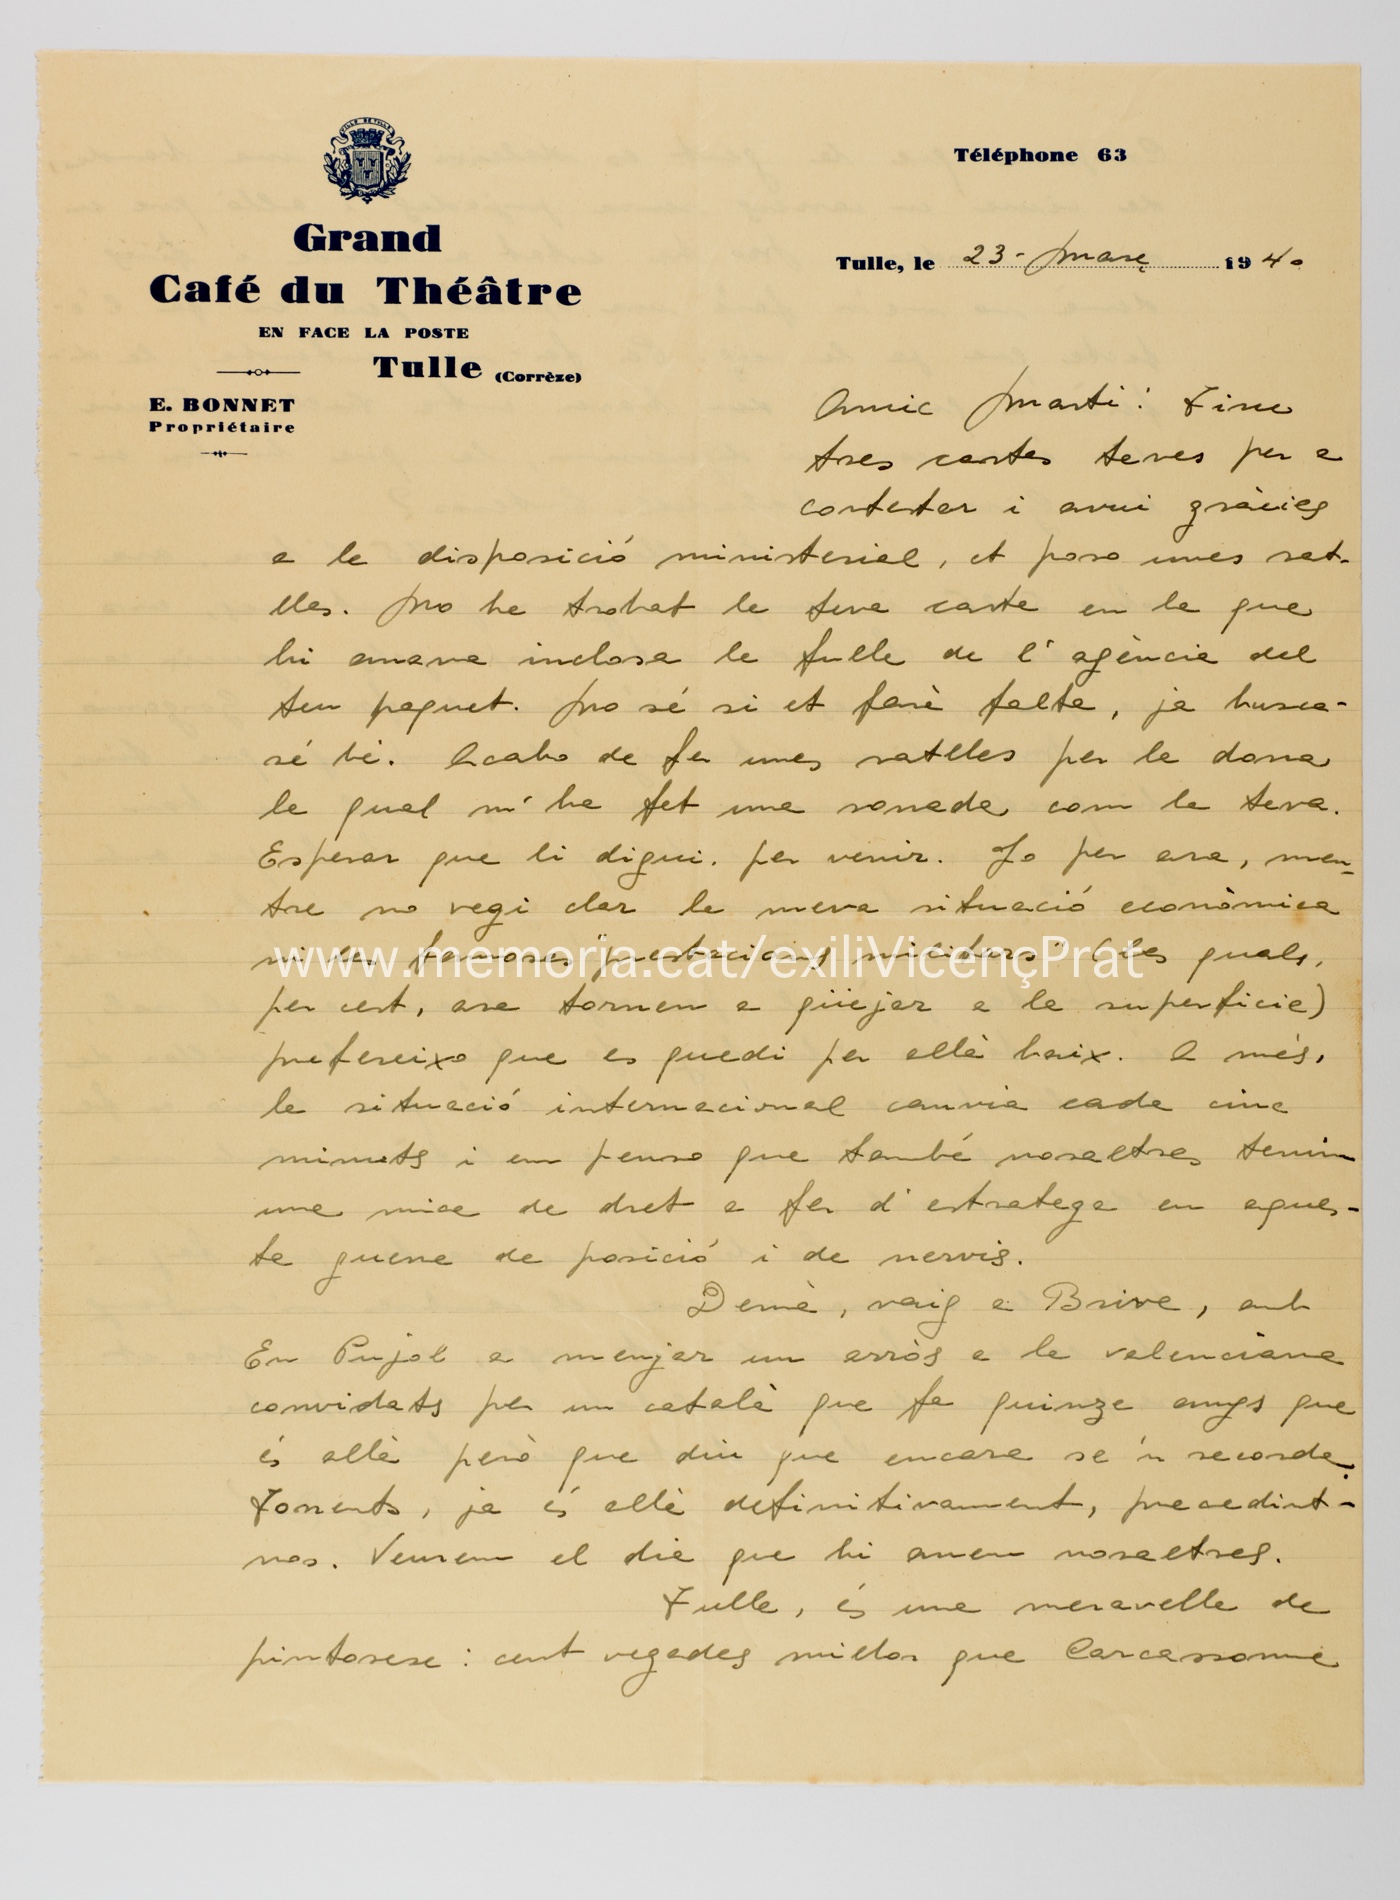 VILLE DE TULLE
Téléphone 63
Grand
Café du Théâtre
EN FACE LA POSTE
Tulle (Corrèze)
E. BONNET
Propriétaire
Tulle, le 23 - Març 1940
Amic Martí: Tinc
tres cartes teves per a
contestar i avui gràcies
a la disposició ministerial, et poso unes rat-
lles. No he trobat la teva carta en la que
hi anava inclosa la fulla de l'agència del
teu paquet. No sé si et farà falta, ja busca-
ré bé. Acabo de fer unes ratlles per la dona
la qual m'ha fet una sonada com la teva.
Esperar que li digui. per venir. Jo per ara, men-
tre no vegi clar la meva situació econòmica
ni les famoses "prestacions militars" (les quals,
per cert, ara tornen a güejar a la superficie)
prefereixo que es quedi per allà baix. A més,
la situació internacional canvia cada cinc
minuts i em penso que també nosaltres tenim
una mica de dret a fer d'estratega en aques-
ta guerra de posició i de nervis.
Demà, vaig a Brive, amb
En Pujol a menjar un arròs a la valenciana
convidats per un català que fa quinze anys que
és allà però que diu que encara se'n recorda.
Torrents, ja és allà definitivament, precedint-
nos. Veurem el dia que hi anem nosaltres.
Tulle, és una meravella de
pintoresc: cent vegades millor que Carcassonne
www.memoria.cat/exiliVicençPrat